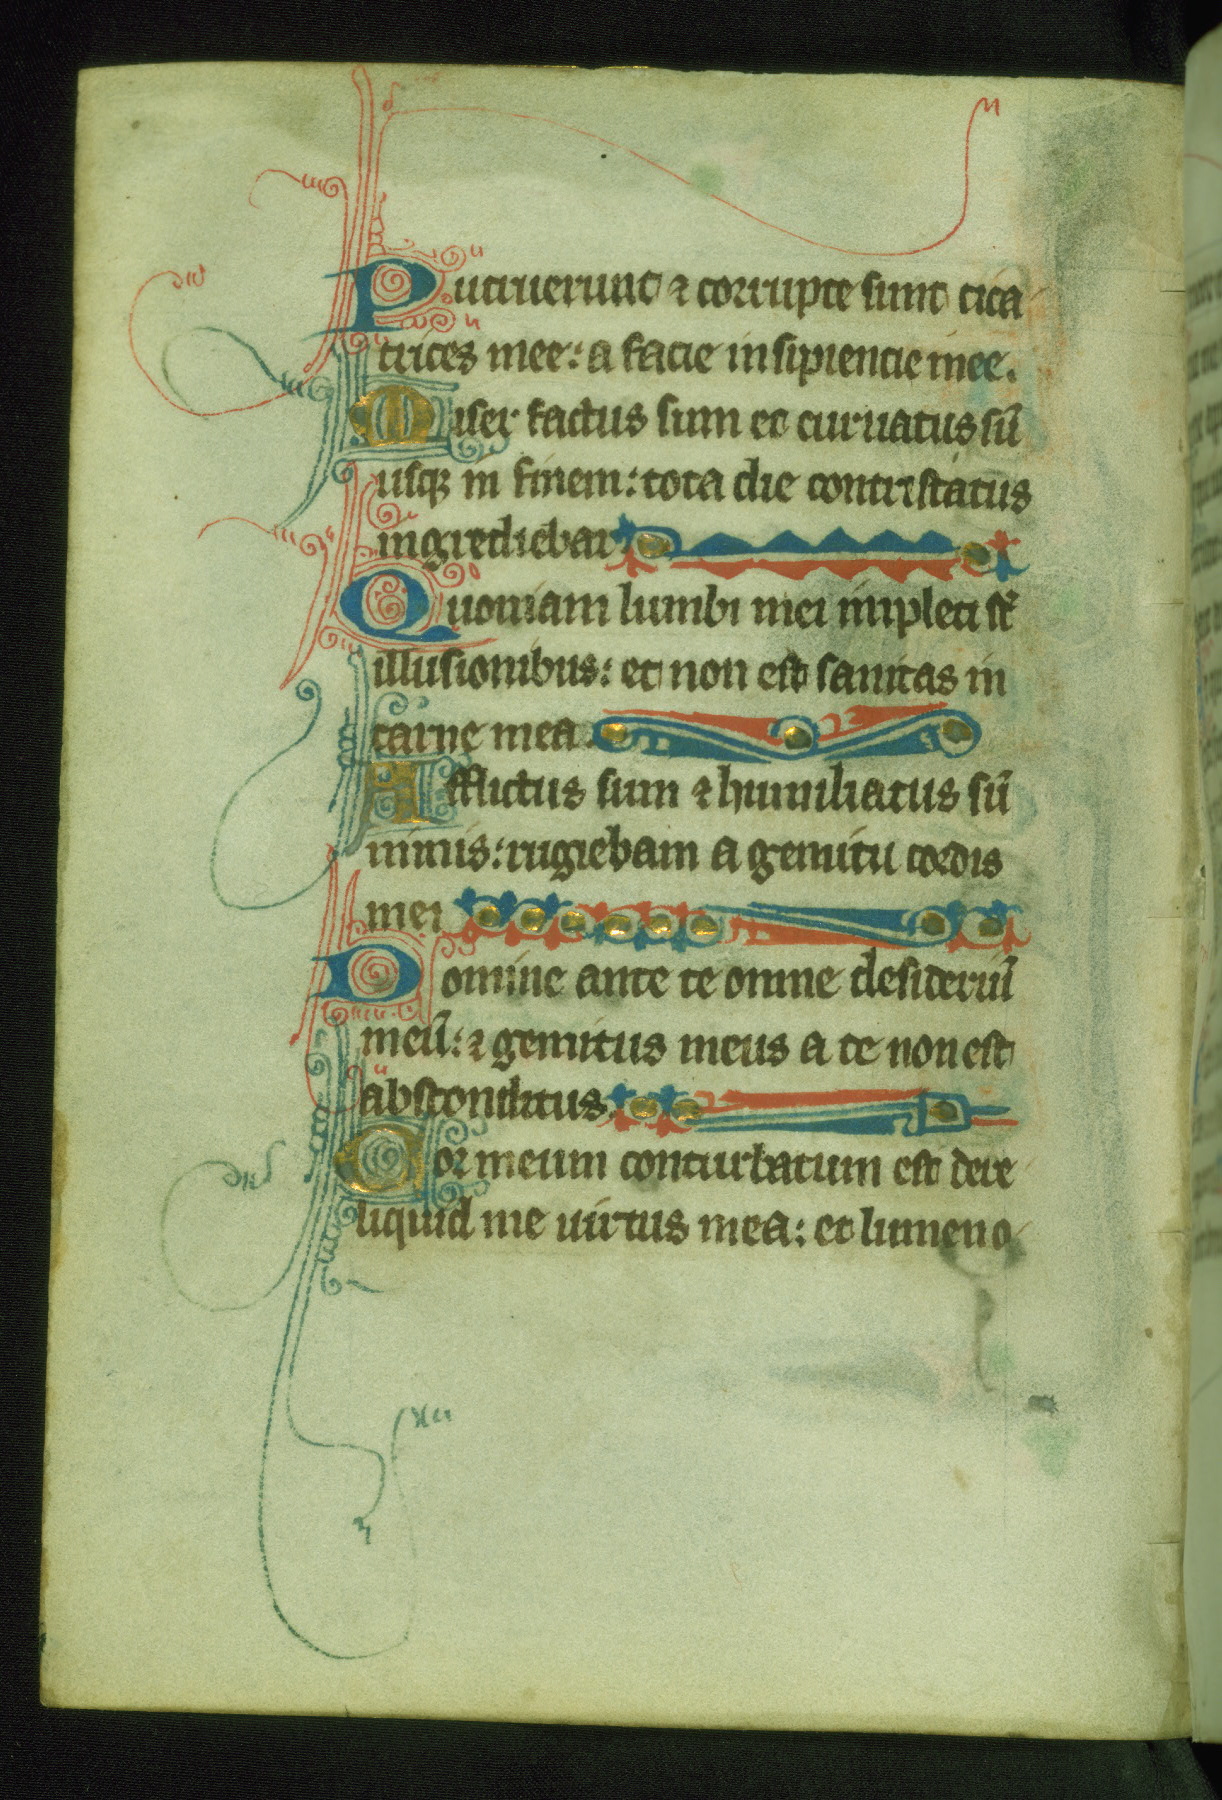 Putruerunt ⁊ corrupte sunt cica
trices mee: a facie insipiencie mee.
Miser factus sum et curuatus sū
usqꝫ in finem: tota die contristatus
ingrediebar
Quoniam lumbi mei impleti st̄
illusionibus: et non est sanitas in
carne mea.
Afflictus sum ⁊ humiliatus sū
nimis: rugiebam a gemitu cordis
mei
Domine ante te omne desideriū
meū: ⁊ gemitus meus a te non est
absconditus.
Cor meum conturbatum est dere
liquid me uirtus mea: et lumen o